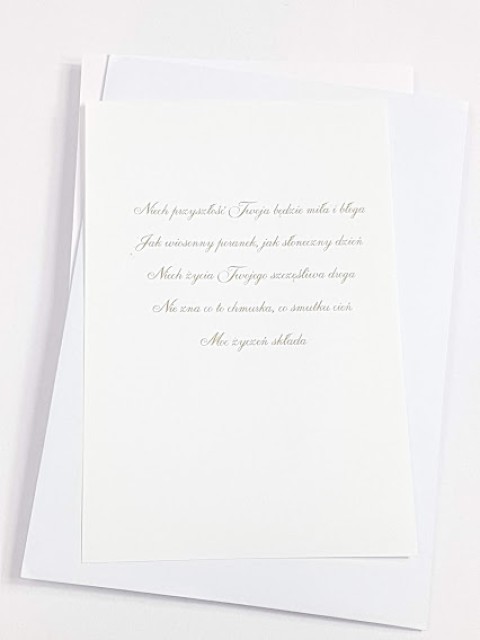 Niech przyszłość Twoja będzie miła i błoga
Jak wiosenny poranek, jak słoneczny dzień
Niech życia Twojego szczęśliwa droga
Nie zna co to chmurka, co smutku cień
Moc życzeń składa